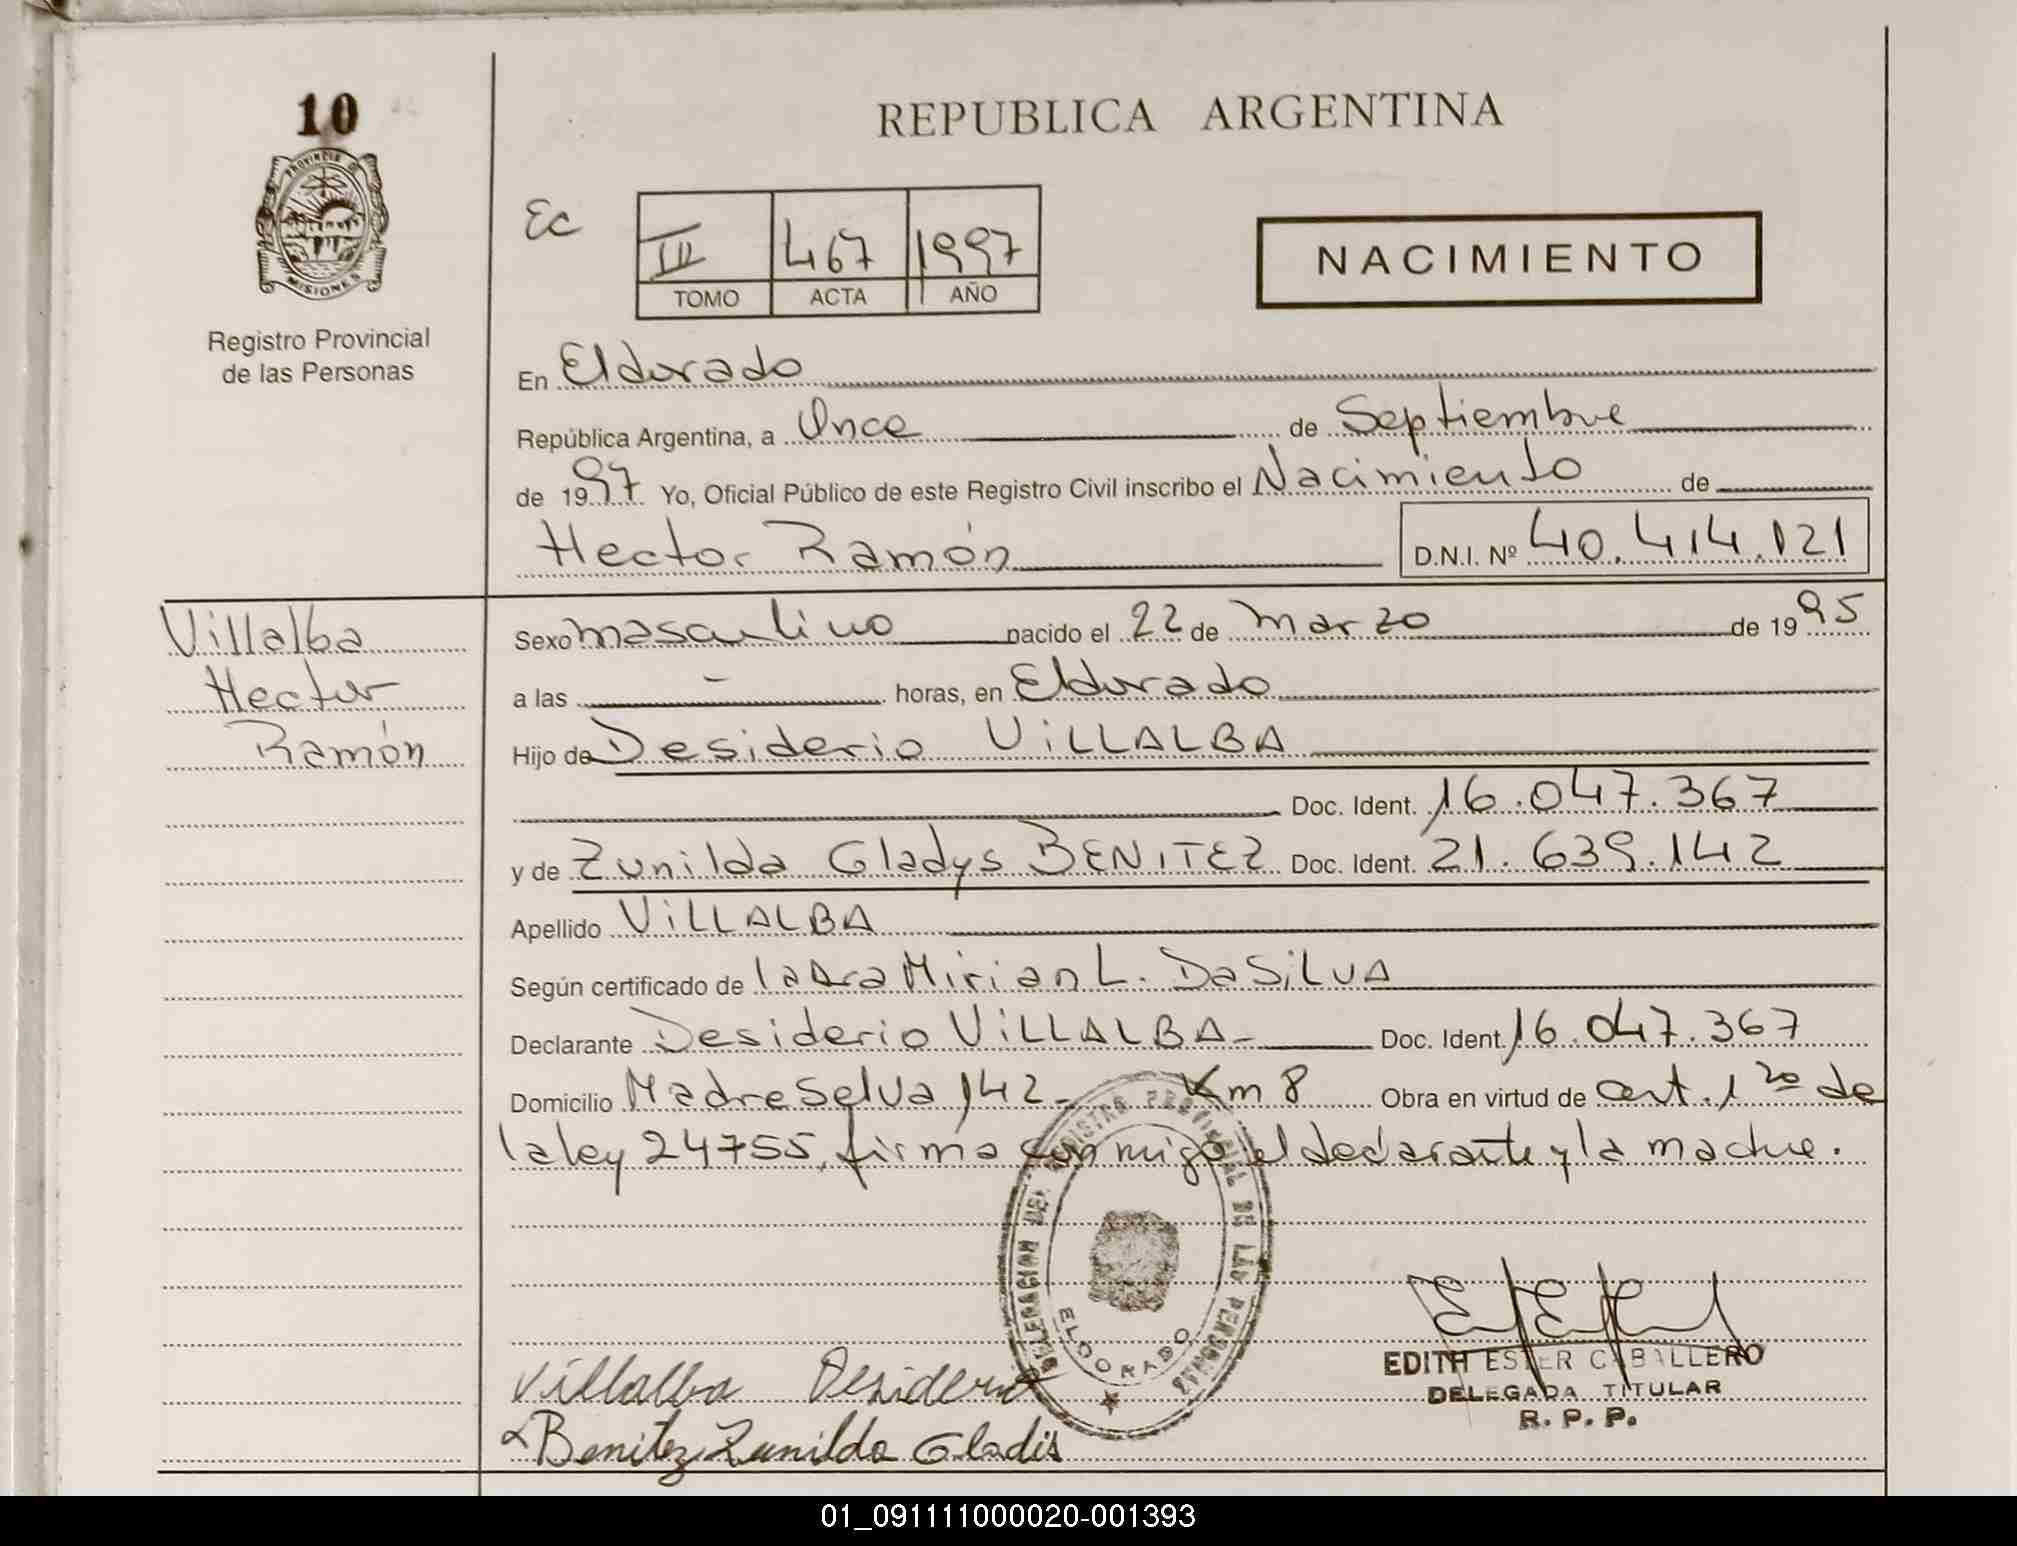 10
PROVINCIA DE
MISIONES
Registro Provincial
de las Personas
REPUBLICA ARGENTINA
Ec
III 467 1997
TOMO ACTA AÑO
NACIMIENTO
En Eldorado
República Argentina, a Once de Septiembre
de 1997 Yo, Oficial Público de este Registro Civil inscribo el Nacimiento de
Hector Ramón D.N.I. Nº 40.414.121
Villalba
Hector
Ramón
Sexo masculino nacido el 22 de marzo de 1995
a las - horas, en Eldorado
Hijo de Desiderio ViLLALBA
Doc. Ident. 16.047.367
y de Zunilda Gladys BENITEZ Doc. Ident. 21.639.142
Apellido ViLLALBA
Según certificado de la Dra Mirian L. DaSiLVA
Declarante Desiderio ViLLALBA- Doc. Ident. 16.047.367
Domicilio MadreSelva 142- Km 8 Obra en virtud de art. 1ro de
la ley 24755, firma con migo el declarante y la madre.
DELEGACION DEL REGISTRO PROVINCIAL DE LAS PERSONAS
ELDORADO
EDITH ESTER CABALLERO
DELEGADA TITULAR
R. P. P.
Villalba Desiderio
Benitez Zunilda Gladis
01_091111000020-001393